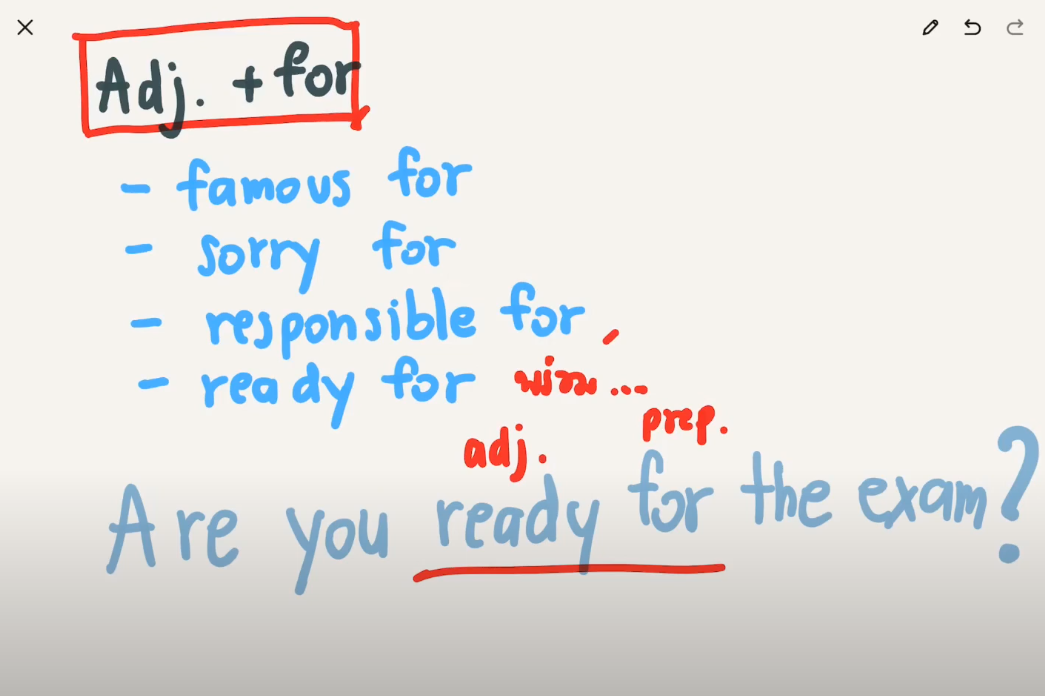 Adj. + for
- famous for
- sorry for
- responsible for
- ready for พร้อม ...
adj. prep.
Are you ready for the exam?